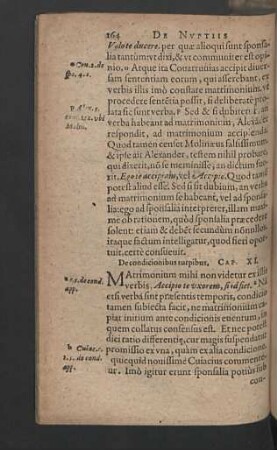 264 DE NVPTIIS
Volo te ducere. per quæ alioqui sunt sponsa
lia tantum: vt dixi, & vt communiter est opi
nio. Atque ita Conattuitius accipit diuer
sam sententiam eorum, qui asserebant, ex
verbis illis imò constare matrimonium. vt
procedere sententia possit, si deliberatè pro
lata sic sunt verba. Sed & si dubitem, an
verba habeant ad matrimonium,
respondit, ad matrimonium accipienda.
Quod tamen censet Molinæus falsissimum:
& ipse ait Alexander, testem nihil probare,
qui dixerit, nō se meminisse, an dictum fue
rit. Ego te accipiam, vel Accipio. Quod tamen
potest aliud esse. Sed si sit dubium, an ver
ba ad matrimonium se habeant, vel ad sponsa
lia: ego ad sponsalia interpreter. etiam illam
ob rationem, quòd sponsalia præcedere
solent: et iam & debēt secundum nōnullos.
itaque factum intelligatur, quod fieri opor
tuit. certè consueuit.
De condicionibus turpibus. CAP. XI.
MAtrimonium mihi non videtur ex istis
verbis. Accipio te vxorem, si id fiat. Nā
etsi verba sint præsentis temporis, condicio
tamen subiecta facit, ne matrimonium ca
piat initium ante condicionis euentum, in
quem collatus consensus est. Et nec potest
dici ratio differentiæ, cur magis suspendat
promissio ex vna, quàm ex alia condicione.
quicquid nouissimè Cuiacius commente
tur. Imò igitur erunt sponsalia potius sub
con-